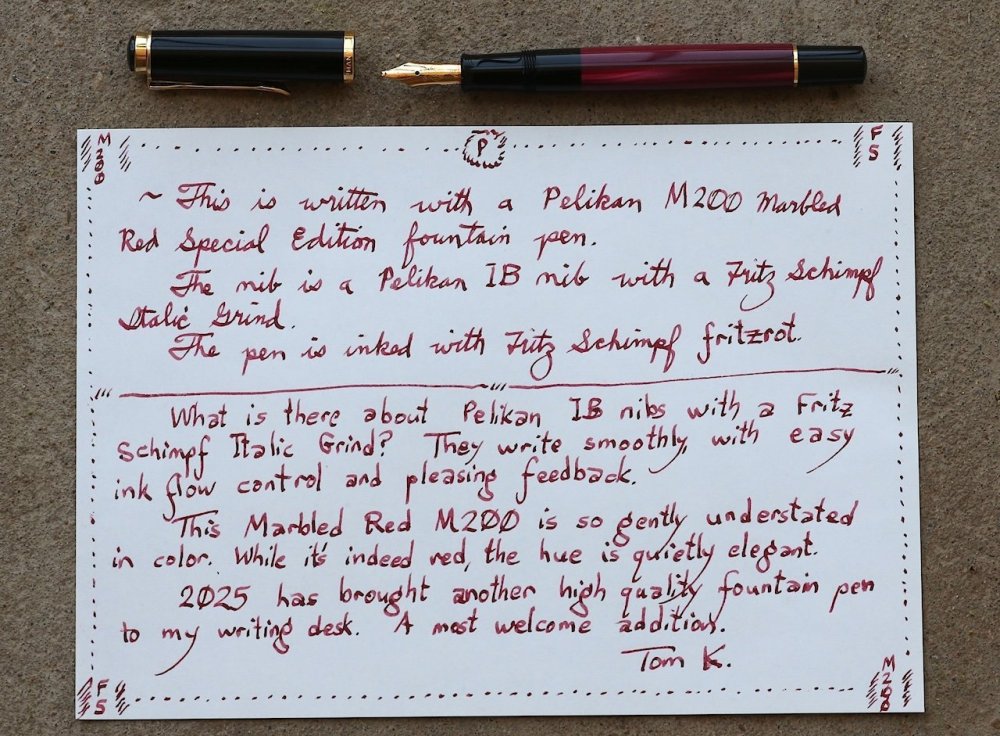 M200
P
FS
~ This is written with a Pelikan M200 Marbled
Red Special Edition fountain pen.
The nib is a Pelikan IB nib with a Fritz Schimpf
Italic Grind.
The pen is inked with Fritz Schimpf fritzrot.
What is there about Pelikan IB nibs with a Fritz
Schimpf Italic Grind? They write smoothly, with easy
ink flow control and pleasing feedback.
This Marbled Red M200 is so gently understated
in color. While it's indeed red, the hue is quietly elegant.
2025 has brought another high quality fountain pen
to my writing desk. A most welcome addition.
Tom K.
FS
M200